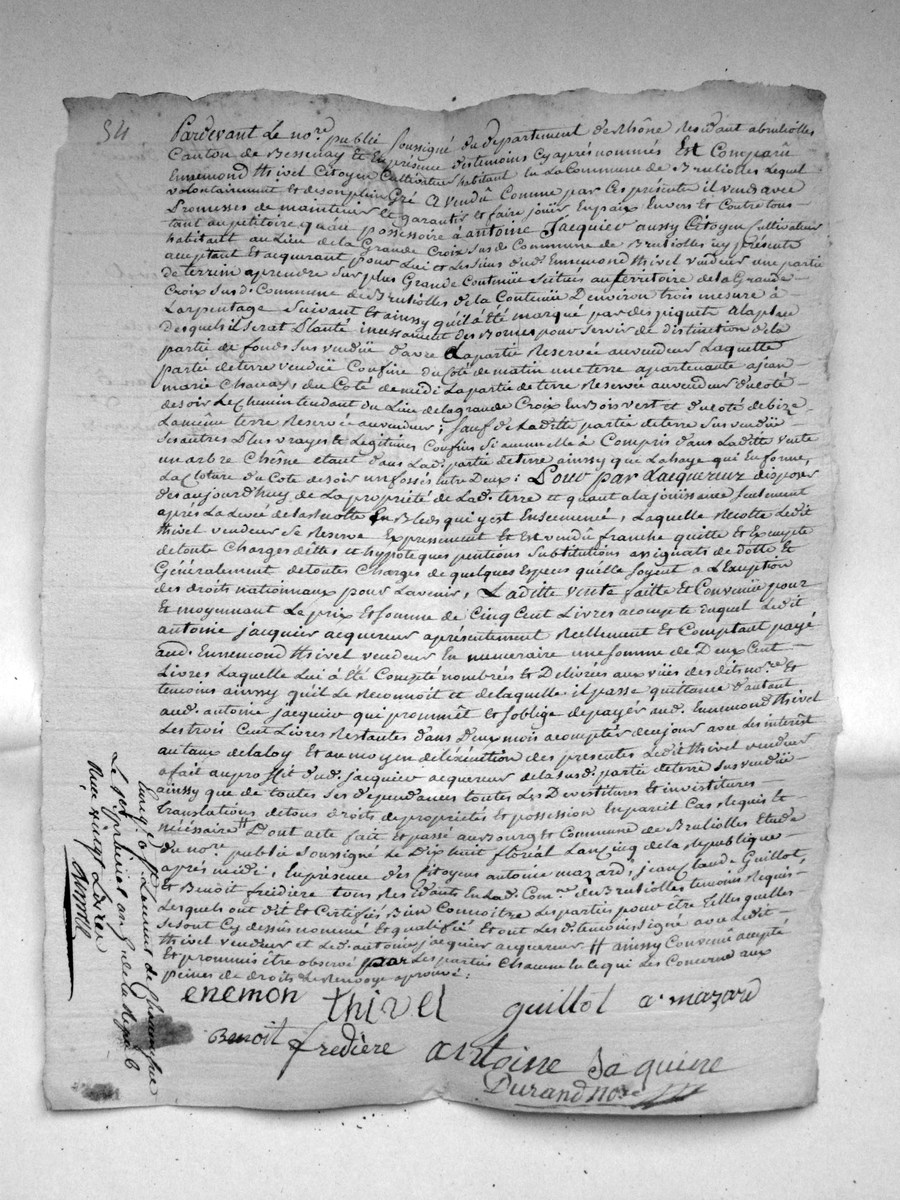 54
Pardevant Le no.re publié soussigné du departement de Rhône Residant abrulioles
Canton de Bessenay & En présence des temoins Cy après nommés Est Comparû
Ennemond thivel Citoyen Cultivateur habitant en La Commune de Brulioles Lequel
volontairement et de son plein Gré a vendû Comme par Ces presente il vend avec
Promesses de maintenir, le garantir et faire jouir En paix Envers et Contre tous
tant au petitoire quau possessoire à antoine Jacquier aussy Citoyen Cultivateur
habitant au Lieu de la Grande Croix susd. Commune de Brulioles icy présente
acceptant et acquerant pour Lui et Les siens dud. Ennemond thivel vendeur une partie
de terrein aprendre sur plus Grande Contenüe située au territoire de la Grande
Croix susd. Commune de Brulioles de la Contenüe D'environ trois mesure à
Larpentage suivant et ainssy qu'il a été marqué par des piquets a la place
desquels il serat Planté incessament des Bornes pour servir de distinction de la
partie de fonds sus vendüe d'avec La partie Reservée au vendeur Laquelle
partie de terre vendüe Confine du Coté de matin une terre apartenante a jean
marie Chanay, du Coté de midi La partie de terre Reservée au vendeur du coté
de soir Le Chemin tendant du Lieu de la grande Croix En Bois vert et du coté de bize
La même terre Reservée au vendeur; sauf de Ladite partie de terre sus vendüe
ses autres Plus vrayes & Legitimes Confins si aucun elle à Compris dans Laditte vente
un arbre Chêne etant dans Lad. partie de terre ainssy que La haye qui En forme,
La Cloture du Coté de soir un fossés Entre Deux: Pour par Lacquereur disposer
des aujourdhuy de La propriété de Lad. terre et quant a la jouissance seulement
après La Levée de la Recolte En Bleds qui y est Ensemencé, Laquelle Recolte Ledit
thivel vendeur se Reserve Expressement et Est vendu franche quitte & Exempte
de toute Charges dettes et hypoteques pentions Substitutions assignats de dotte Et
Généralement de toutes Charges de quelques Especes quelle soyent a L'Exeption
des droits nationnaux pour Lavenir, Ladite vente faitte et Convenüe pour
et moyennant Le prix Et somme de Cinq Cent Livres acompte duquel Ledit
antoine jacquier acquereur a présentement Reellement Et Comptant payé
aud. Ennemond thivel vendeur En numeraire une somme de Deux Cent
Livres Laquelle Lui à été Compté nombrée & Delivrée aux vües des dits no.re Et
temoins ainssy quil Le Reconnoit et de laquelle il passe quittance d'autant
aud. antoine jacquier qui prommêt & soblige de payér aud. Ennemond thivel
Les trois Cent Livres Restantes dans Deux mois a compter de ce jour avec Les interêt
au taux de la Loy Et au moyen de L'éxécution des presentes Ledit thivel vendeur
a fait au proffit dud. jacquier acquereur de la susd. partie de terre sus vendüe
ainssy que de toutes ses dépendances toutes Les Devestitures Et investitures
translations de tous droits de proprietés et possession En pareil Cas Requis &
nécéssaire # Dont acte fait et passé au Bourg et Commune de Brulioles Etude
du no.re publié soussigné Le Dix huit floréal Lan Cinq de la Republique
après midi, En présence des Citoyens antoine mazard, jean Claude Guillot,
Et Benoit freidiere tous Residants En Lad. Com.ne de Brulioles temoins Requis
Lesquels ont dit Et Certifiés Bien Connoitre Les parties pour être telles quelles
se sont Cy dessüs nommé et qualifié Et ont Les d. temoins signé avec Ledit
thivel vendeur et Led. antoine jacquier acquereur # ainssy Convenu accepté
Et prommis être observé par Les parties Chacune En Ce qui Les Concerne aux
peines de droits Le Renvoye aprouvé:
enemon thivel guillot a. mazard
Benoit fredière antoine Jaquiere
Durand nore
Enreg. à St Laurent de Chamousset
Le prairial an 5 de la Repub